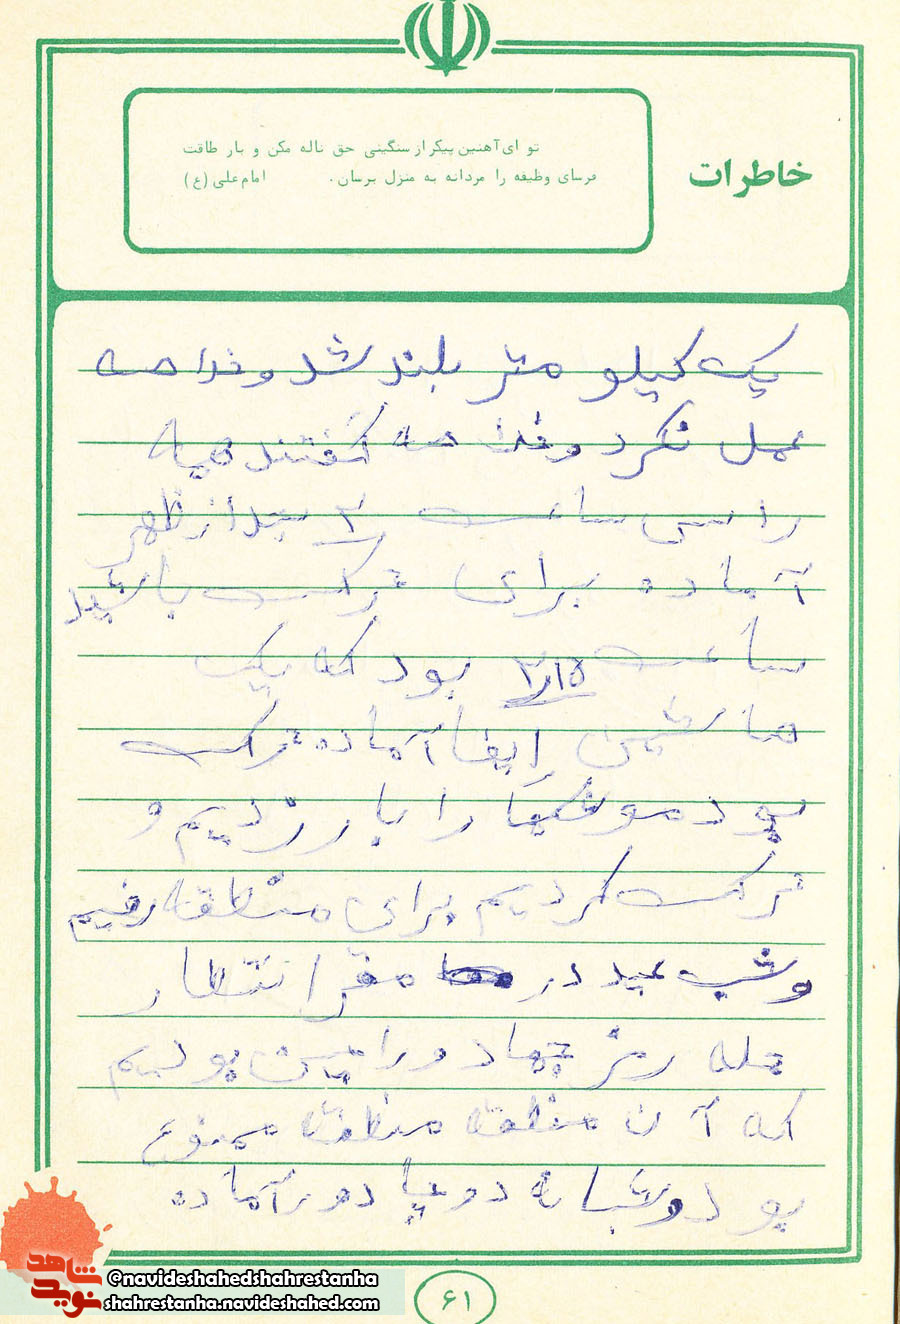 خاطرات
تو ای آهنین پیکر از سنگینی حق ناله مکن و بار طاقت
فرسای وظیفه را مردانه به منزل برسان. امام علی (ع)
یک کیلو متر بلند شد و خلاصه
عمل نکرد و خلاصه گفتند همه
راسی ساعت ۳ بعد از ظهر
آماده برای ترک باشید
ساعت ۳٫۱۵ بود که یک
ماشین ایفا آماده ترک
بود موشکها را بار زدیم و
ترک کردیم برای منطقه رفیم
و شب عید در مقر انتظار
حمله رمز جهاد ورامین بودیم
که آن منطقه منطقه ممنوع
بود و شبانه دو چادور آماده
۶۱
شاهد
نوید
@navideshahedshahrestanha
shahrestanha.navideshahed.com